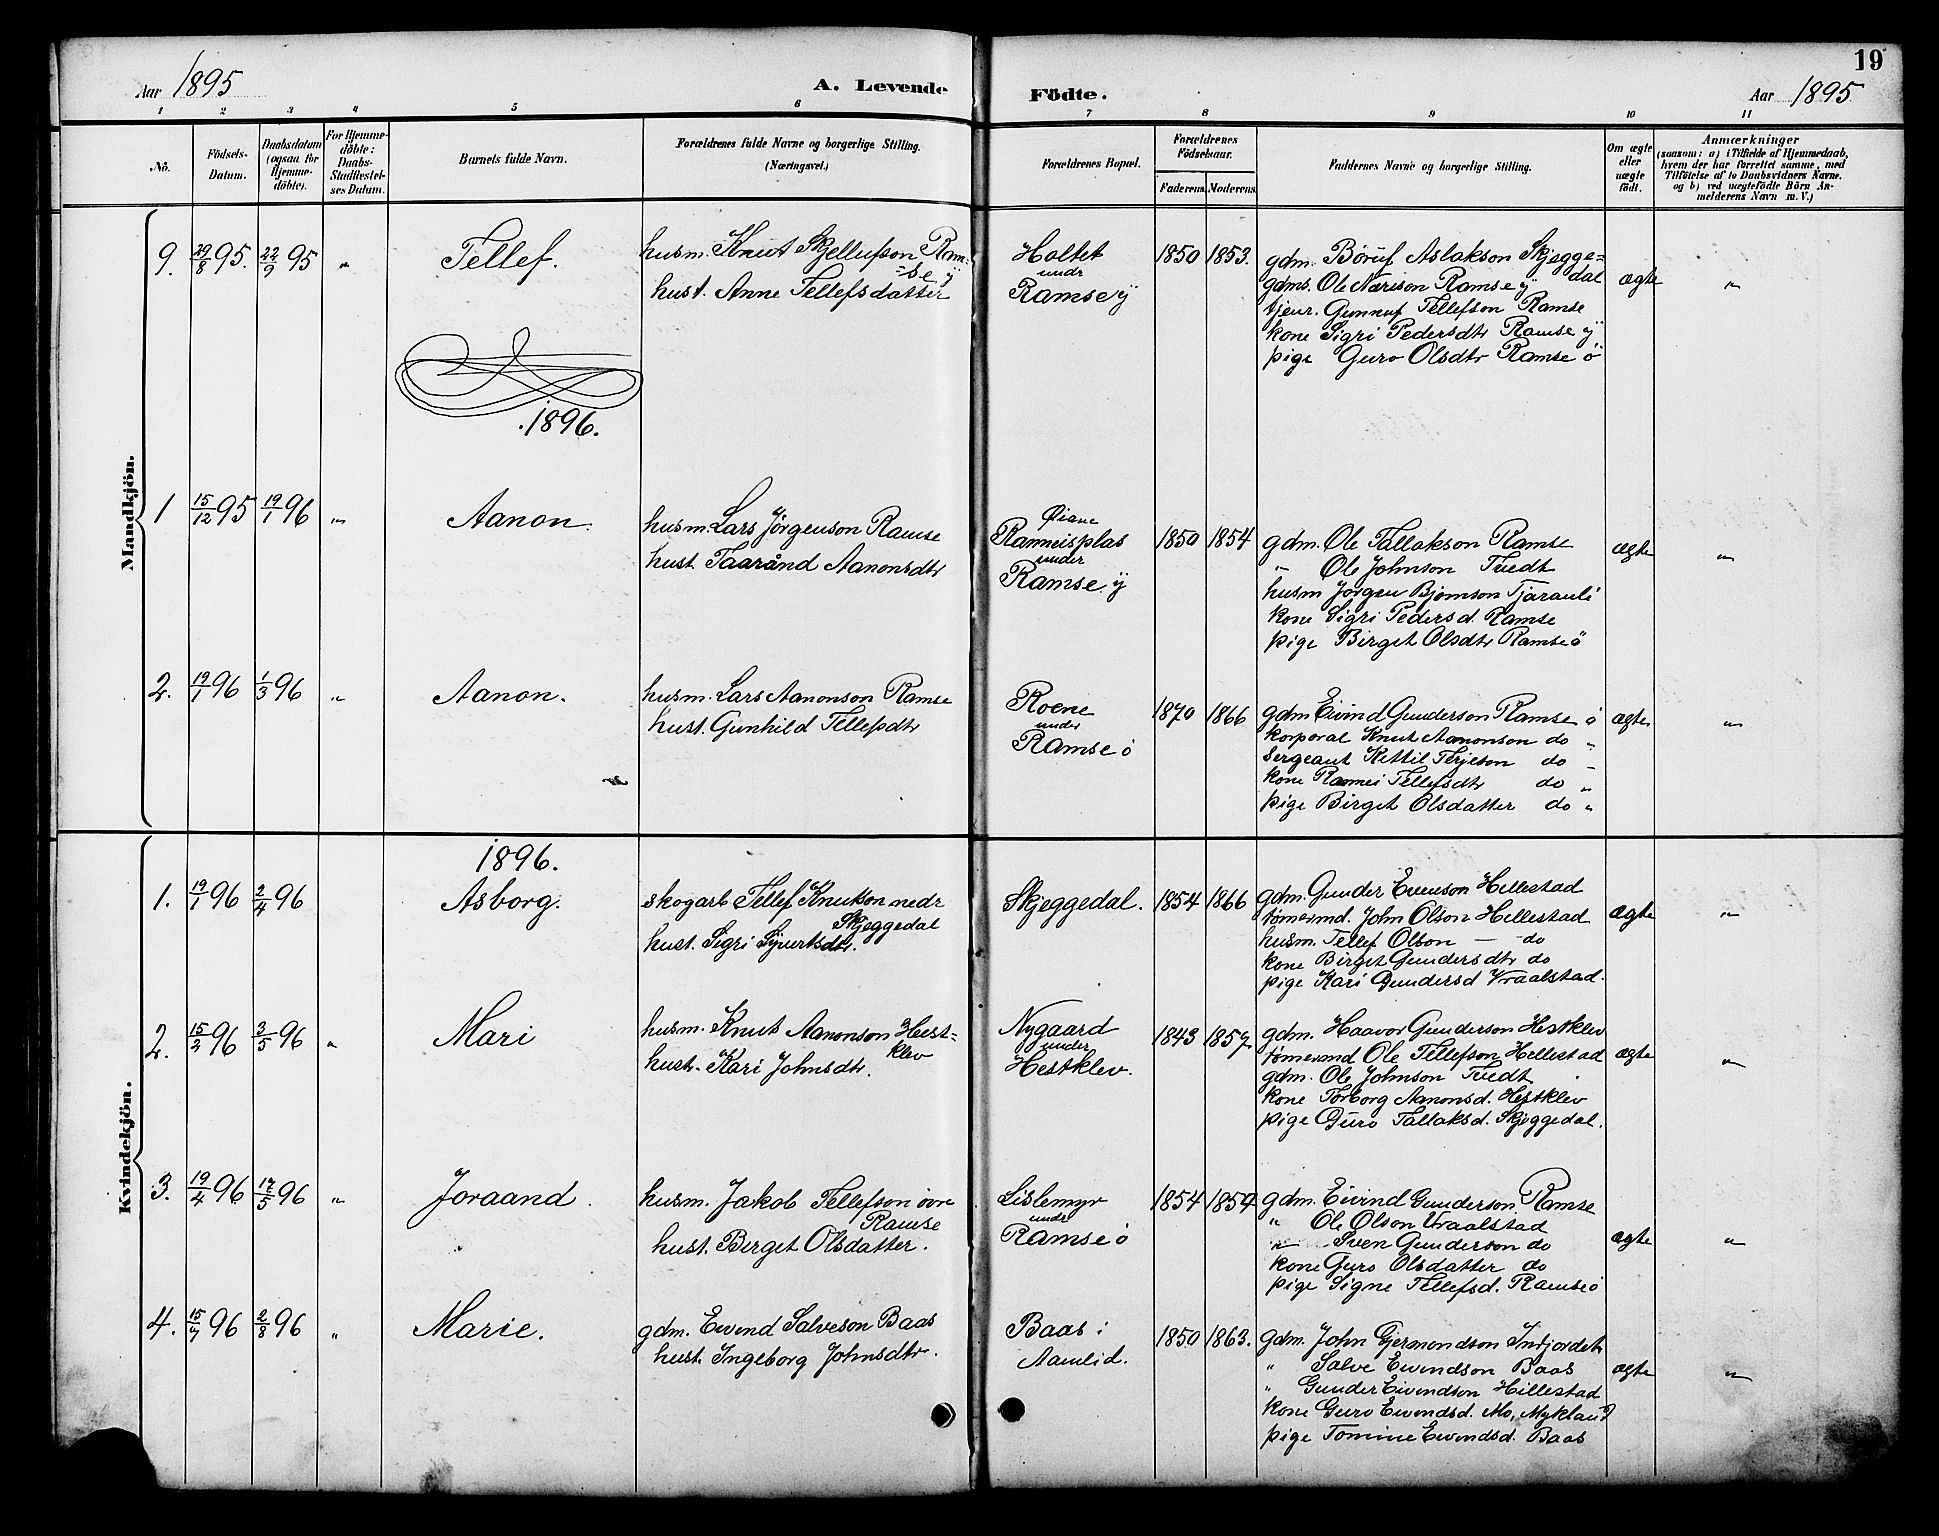 19
Aar 1895 A. Levende Födte. Aar 1895
1 2 3 4 5 6 7 8 9 10 11
No.
Födsels-Datum.
Daabsdatum (ogsaa for Hjemme-döbte).
For Hjemme-döbte: Daabs-Stadfæstel-ses Datum.
Barnets fulde Navn.
Forældrenes fulde Navne og borgerlige Stilling. (Næringsvei.)
Forældrenes Bopæl.
Forældrenes Födselsaar.
Faderens. Moderens.
Faddernes Navne og borgerlige Stilling.
Om ægte eller uægte födt.
Anmærkninger
(saasom: a) i Tilfælde af Hjemmedaab,
hvem der har forrettet samme, med
Tilföielse af to Daabsvidners Navne,
og b) ved uægtefödte Börn An-
melderens Navn m. V.)
Mandkjön.
9. 29/8 95. 22/9 95 " Tellef.
husm. Knut Skjellufson Ram-
se y
hust. Anne Tellefsdatter
Holtet
undr
Ramse y
1850 1853.
gdm. Børuf Aslakson Skjegge-
dal
gdms. Ole Nærison Ramse y
tjenr. Gunnuf Tellefson Ramse
kone Sigri Pedersdtr Ramse y
pige Guro Olsdtr Ramse ö
ægte "
1896.
1 15/12 95 19/1 96 " Aanon.
husm. Lars Jörgenson Ramse
hust. Taarånd Aanonsdtr
Øiane
Ranneisplas
under
Ramse y
1850 1854
gdm. Ole Tallakson Ramse
" Ole Johnson Tvedt
husm Jörgen Björnson Tjørauli
kone Sigri Pedersd. Ramse
pige Birget Olsdtr Ramse ö
ægte "
2. 19/1 96 1/3 96 " Aanon.
husm. Lars Aanonson Ramse
hust. Gunhild Tellefsdtr
Roene
under
Ramse ö
1870 1866
gdm Eivind Gunderson Ramse ö
korporal Knut Aanonson do "
sergeant Kettil Terjeson do "
kone Rannei Tellefsdtr do "
pige Birget Olsdatter do "
ægte "
Kvindekjön.
1896.
1. 19/1 96 2/4 96 Asborg.
skogarb Tellef Knutson nedr
Skjeggedal
hust. Sigri Sjurtsdtr.
Skjeggedal.
1854 1866
gdm. Gunder Evenson Hillestad
tömermd. John Olson Hillestad
husm. Tellef Olson — do
kone Birget Gundersdtr do
pige Kari Gundersd Vraalstad.
ægte "
2. 15/2 96 3/5 96 " Mari
husm. Knut Aanonson Hest-
klev
hustr. Kari Johnsdtr.
Nygaard
under
Hestklev.
1843 1857
gdm. Haavor Gunderson Hestklev
tömermd Ole Tellefson Hillestad
gdm. Ole Johnson Tvedt
kone Torborg Aanonsd. Hestklev
pige Guro Tallaksd. Skjeggedal.
ægte "
3. 19/4 96 17/5 96 " Joraand.
husm. Jakob Tellefson övre
Ramse
hust. Berget Olsdatter.
Lislemyr
undr
Ramse ö
1854 1854
gdm. Eivind Gunderson Ramse
" Ole Olson Vraalstad
" Sven Gunderson do
kone Guro Olsdatter do
pige Signe Tellefsd. Ramse ö
ægte "
4. 15/7 96 2/8 96 " Marie.
gdm. Eivind Salveson Baas
hust. Ingeborg Johnsdtr.
Baas i
Aamlid.
1850 1863.
gdm. John Gjermondson Indfjordet
" Salve Eivindson Baas
" Gunder Eivindson Hillestad
kone Guro Eivindsd. Mo, Mykland
pige Tomine Eivindsd. Baas
ægte "